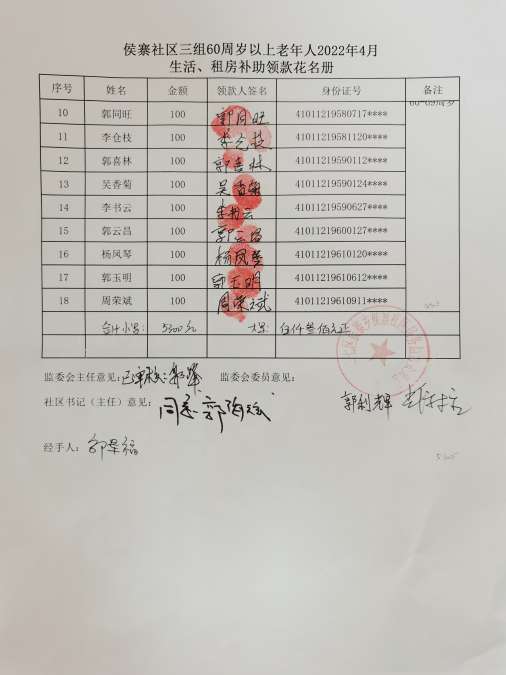 侯寨社区三组60周岁以上老年人2022年4月
生活、租房补助领款花名册
序号 姓名 金额 领款人签名 身份证号 备注
10 郭同旺 100 郭同旺 41011219580717****
11 李仓枝 100 41011219581120****
12 郭喜林 100 郭喜林 41011219590112****
13 吴香菊 100 吴香菊 41011219590124****
14 李书云 100 李书云 41011219590627****
15 郭云昌 100 郭云昌 41011219600127****
16 杨凤琴 100 杨凤琴 41011219610120****
17 郭玉明 100 郭玉明 41011219610612****
18 周荣斌 100 周荣斌 41011219610911****
合计小写: 5300元 大写: 伍仟叁佰元正
监委会主任意见: 监委会委员意见:
社区书记(主任)意见: 同意 郭利辉
经手人: